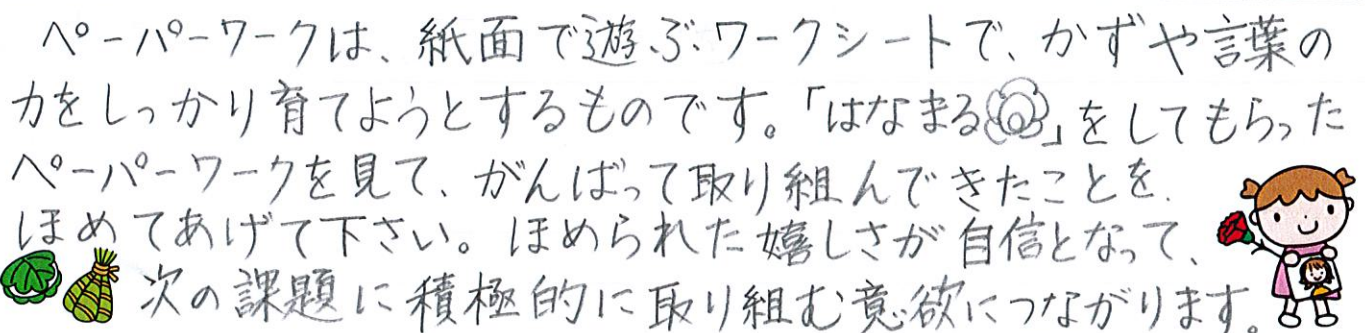 ペーパーワークは、紙面で遊ぶワークシートで、かずや言葉の
力をしっかり育てようとするものです。「はなまる」をしてもらった
ペーパーワークを見て、がんばって取り組んできたことを
ほめてあげて下さい。ほめられた嬉しさが自信となって、
次の課題に積極的に取り組む意欲につながります。